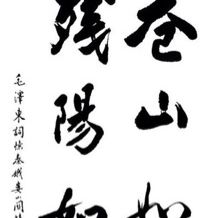 苍山如
残陽如
毛澤東詞憶秦娥婁山關